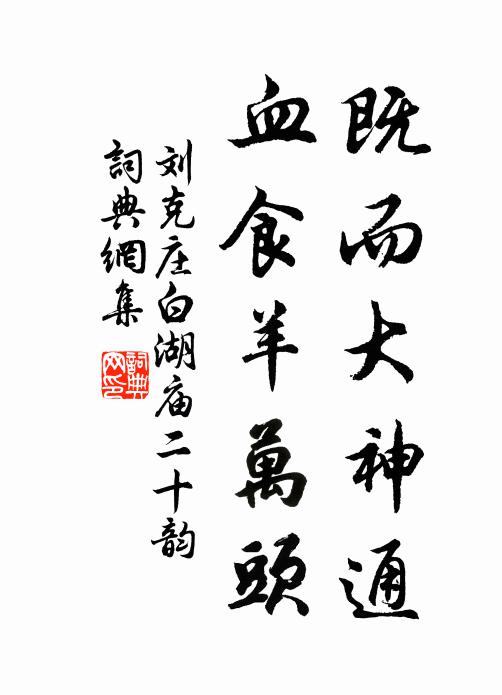 既而大神通
血食羊萬頭
刘克庄白湖庙二十韵
詞典網集
詞典網印